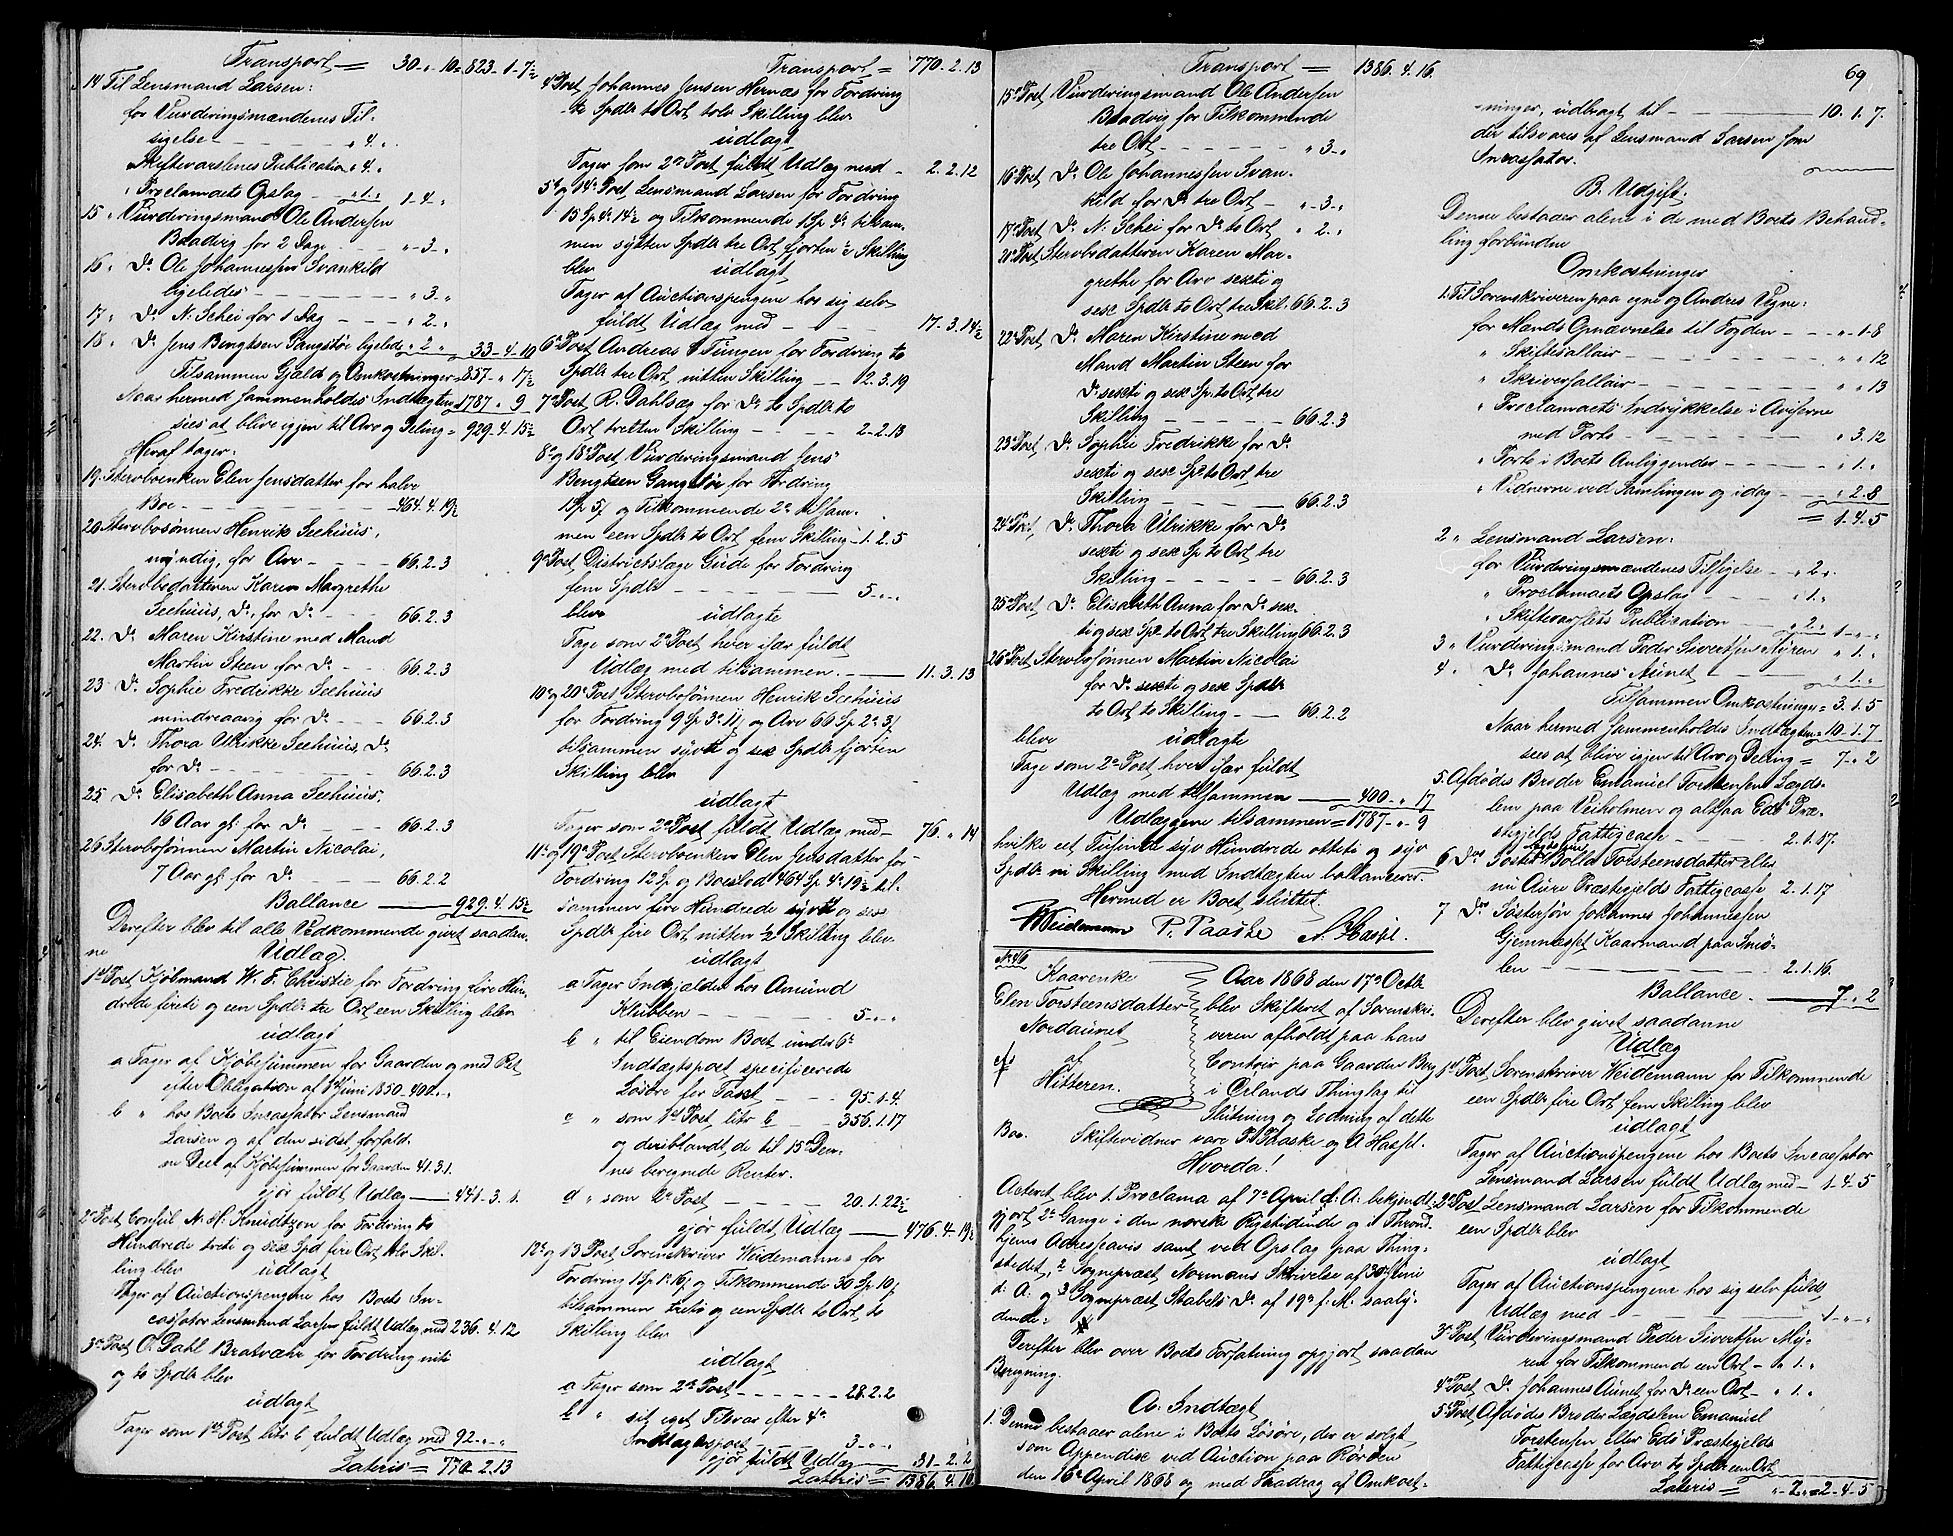 Transport = 30 „ 10 = 823-1-7½
14 Til Lensmand Larsen:
for Vurderingsmændenes Til-
sigelse - - - „ 4 „
Skiftevarslenes Publication „ 4 „
„ Proclamaets Opslag - „ 1 „ 1-4 „
15 „ Vurderingsmand Ole Andersen
Baadvig for 2 Dage - - - „-3-„
16 „ Do Ole Johannessen Svankild
ligeledes - - - „ 3 „
17 „ Do N. Schei for 1 Dag - - - „ 2 „
18 „ Do Jens Bengtsen Gangstøe ligelede „ 2 „ 33-4-10
Tilsammen Gjæld og Omkostninger = 857 „ 17½
Naar hermed sammenholdes Indtægten 1787 „ 9
sees at blive igjen til Arv og Deling = 929.4.15½
Heraf tager:
19. Stervboenken Elen Jensdatter for halve
Boe - - - 464.4.19½
20. Stervbosønnen Henrik Seehuus,
myndig, for Arv - - - 66.2.3
21. Stervbodatteren Karen Margrethe
Seehuus, Do, for Do - 66.2.3
22. Do Maren Kirstine med Mand
Martin Steen for Do - - 66.2.3
23. Do Sophie Fredrikke Seehuus
mindreaarig for Do - - - 66.2.3
24. Do Thora Ulrikke Seehuus, Do
for Do - - - 66.2.3
25. Do Elisabeth Anna Seehuus,
16 Aar gl. for Do - - 66.2.3
26. Stervbosønnen Martin Nicolai,
7 Aar gl. for Do - - - 66.2.2
Ballance - 929.4.15½
Derefter blev til alle Vedkommende givet saadan-
ne Udlæg.
1st Post, Kjøbmand W. F. Christie for Fordring fire Hun-
drede fireti og een Spdlr tre Ort een Skilling blev
udlagt
a Tager af Kjøbesummen for Gaarden og med Ret
efter Obligation af 1st Juni 1850 - 400 „ „
b „ hos Boets Incassator Lensmand
Larsen og af den sidst forfald-
ne Deel af Kjøbesummen for Gaarden 41.3.1.
gjør fuldt Udlæg - 441-3.1.
2n Post, Consul N. H. Knudtzon for Fordring to
Hundrede treti og sex Spd fire Ort tolv Skil-
ling blev udlagt
Tager af Auctionspengene hos Boets In-
cassator Lensmand Larsen fuldt Udlæg med 236.4.12
3n Post O. Dahl Bratvær for Fordring niti
og to Spdlr blev
udlagt
Tager som 1st Post litr b fuldt Udlæg med 92-„-„
Lateris = 770-2.13
Transport = 770.2.13
4n Post Johannes Jensen Hernæs for Fordring
to Spdlr to Ort tolv Skilling blev
udlagt
Tager som 2n Post, fuldt Udlæg med - 2.2.12
5n og 14n Post, Lensmand Larsen for Fordring
15 Sp 4o 14½ og Tilkommende 1 Sp 4o tilsam-
men sytten Spdlr tre Ort fjorten ½ Skilling
blev udlagt
Tager af Auctionspengene hos sig selv
fuldt Udlæg med - - - 17.3.14½
6n Post, Andreas Tungen for Fordring to
Spdlr tre Ort nitten Skilling - - 2.3.19
7n Post, R. Dahlsæg for Do to Spdlr to
Ort tretten Skilling - - - 2-2.13
8n og 18n Post, Vurderingsmand Jens
Bengtsen Gangstøe for Fordring
1 Sp 5 og Tilkommende 2o tilsam-
men een Spdlr to Ort fem Skilling - 1.2.5
9n Post, Districtslæge Girde for Fordring
fem Spdlr - - - 5 „ „
blev udlagte
Tage som 2n Post hver især fuldt
Udlæg med tilsammen - 11.3.13
10n og 20n Post Stervbosønnen Henrik Seehuus
for Fordring 9 Sp 3o 11 og Arv 66 Sp 2o 3
tilsammen syvti og sex Spdlr fjorten
Skilling blev
udlagt
Tager som 2n Post fuldt Udlæg med - 76. „ 14
11n og 19n Post Stervboenken Elen Jensdatter for
Fordring 12 Sp og Boeslod 464 Sp 4o 19½ til-
sammen fire Hundrede syvti og sex
Spdlr fire Ort nitten ½ Skilling blev
udlagt
a Tager Indgjælden hos Amund
Klubben - - - 5 „ „
b „ til Eiendom Boets under 6n
Indtægtspost specificerede
Løsøre for Taxt - - - 95.1.4.
c „ som 1st Post litr b - 356.1.17
og deriblandt de til 15n Den-
nes beregnede Renter.
d „ som 2n Post - - - 20.1.22½
gjør fuldt Udlæg - 476.4.19½
12n og 13 Post, Sorenskriver Weidemann for
Fordring 1 Sp 1o 16 og Tilkommende 30 Sp 10
tilsammen treti og een Spdlr to Ort to
Skilling blev
udlagt
a Tager som 2n Post - - - 28.2.2
b „ sit eget Tilsvar efter 4n
Indtægtspost - - - 3 „ „
gjør fuldt Udlæg 31-2.2
Lateris = 1386.4.16
Transport = 1386.4.16.
15n Post Vurderingsmand Ole Andersen
Baadvig for Tilkommende
tre Ort - - - „ 3 „
16n Post Do Ole Johannessen Svan-
kild for Do tre Ort - „-3-„
17n Post, Do N. Schei for Do to Ort „ 2 „
21n Post Stervbodatteren Karen Mar-
grethe for Arv sexti og
sex Spdlr to Ort tre Skl. 66.2.3
22n Post, Do Maren Kirstine med
Mand Martin Steen for
Do sexti og sex Sp. to Ort tre
Skilling - - - 66.2.3
23n Post, Do Sophie Fredrikke for Do
sexti og sex Sp. to Ort tre
Skilling - - - 66.2.3
24n Post, Do Thora Ulrikke for Do
sexti og sex Sp to Ort tre
Skilling - - - 66.2.3
25n Post, Do Elisabeth Anna for Do sex-
ti og sex Sp. to Ort tre Skilling 66.2.3
26n Post Stervbosønnen Martin Nicolai
for Do sexti og sex Spdlr
to Ort to Skilling - - 66.2.2
bleve udlagte
Tage som 2n Post hver især fuldt
Udlæg med tilsammen - 400 „ 17
Udlæggene tilsammen = 1787 „ 9
hvilke eet Tusinde syv Hundrede ottети og syv
Spdlr ni Skilling med Indtægten ballancerer.
Hermed er Boet sluttet.
Weidemann P. Paaske A. Hassel.
No 46
Kaarenke
Elen Torstensdatter
Nordaunet
af
Hitteren.
Boe.
Aar 1868 den 17n Octb.
blev Skifteret af Sorenskri-
veren afholdt paa hans
Contoir paa Gaarden Berg
i Ørlands Thinglag til
Slutning og Lodning af dette
Skiftevidner vare P. Paaske og A Hassel.
Hvorda!
Acteret blev 1. Proclama af 7n April d. A. bekjendt-
gjort 2n Gange i den norske Rigstidende og i Thrond-
hjems Adresseavis samt ved Opslag paa Thing-
stedet, 2 Sognepræst Normans Skrivelse af 30 Juni
d. A. og 3 Sognepræst Stabels Do af 19n f. M. saaly-
dende:
Derefter blev over Boets Forfatning opgjort saadan
Beregning.
A. Indtægt
1. Denne bestaaer alene i Boets Løsøre, der er solgt
som Appendix ved Auction paa Rørøen
den 16n April 1868 og med Fradrag af Omkost-
69
ninger, udbragt til - - - 10.1.7.
der tilsvares af Lensmand Larsen som
Incassator.
B. Udgift.
Denne bestaaer alene i de med Boets Behand-
ling forbundne
Omkostninger
1. Til Sorenskriveren paa egne og Andres Vegne:
for Mands Opnævnelse til Fogden - - „ 1-8
„ Skiftesallair - - - „ „ 12
„ Skriversallair - - - „ „ 13
„ Proclamaets Indrykkelse i Aviserne
med Porto - - - „ 3.12
„ Porto i Boets Anliggender - - - „ 1 „
„ Vidnerne ved Samlingen og idag - - „ 2.8
= 1.4.5
2 „ Lensmand Larsen:
for Vurderingsmændenes Tilsigelse - „ 2 „
„ Proclamaets Opslag - - „ 1 „
„ Skiftevarslets Publication - „ 2 „ 1-„-„
3 „ Vurderingsmand Peder Sivertsen Myren „ 1 „
4 „ Do Johannes Aunet - - - „ 1 „
Tilsammen Omkostninger = 3.1.5
Naar hermed sammenholdes Indtægten = 10.1.7
sees at blive igjen til Arv og Deling = 7 „ 2
5. Afdødes Broder Emanuel Torstensen Lægds-
lem paa Veiholmen og altsaa Edø Præ-
stegjelds Fattigcasse - - 2.1.17.
6 Ds Søster Bolld Torsteensdatter eller
nu Aure Præstegjelds Fattigcasse 2.1.17
7 Ds Søstersøn Johannes Johannessen
Gjemnæsset Kaarmand paa Smø-
len - - - 2.1.16.
Ballance. - 7 „ 2
Derefter blev givet saadanne
Udlæg
1st Post, Sorenskriver Weidemann for Tilkommende
een Spdlr fire Ort fem Skilling blev
udlagt
Tager af Auctionspengene hos Boets Incassator
Lensmand Larsen fuldt Udlæg med - 1-4-5
2n Post Lensmand Larsen for Tilkommende
een Spdlr blev
udlagt
Tager af Auctionspengene hos sig selv fuldt
Udlæg med - - - 1-„-„
3n Post, Vurderingsmand Peder Sivertsen My-
ren for Tilkommende een Ort - „ 1 „
4n Post Do Johannes Aunet, for Do een Ort - „ 1 „
5n Post, Afdødes Broder Lægdslem Emanuel
Torstensen eller Edø Præstegjelds
Fattigcasse for Arv to Spdlr een Ort
Lateris = „-2 „ = 2-4-5